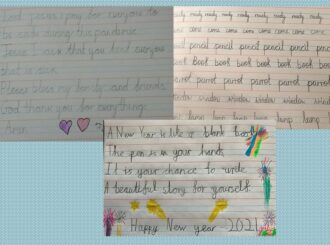 Lord Jesus i pray for everyone to
be safe during this pandemic.
Jesus I ask that you heal everyone
that is sick.
Please bless my family and friends.
God thank you for everything.
Amen.
ready ready ready ready ready ready
come come come come come come
pencil pencil pencil pencil pencil
book book book book book book
parrot parrot parrot parrot
window window window window
lamp lamp lamp lamp lamp
A New Year is like a blank book
The pen is in your hands
It is your chance to write
A beautiful story for yourself.
Happy New year 2021